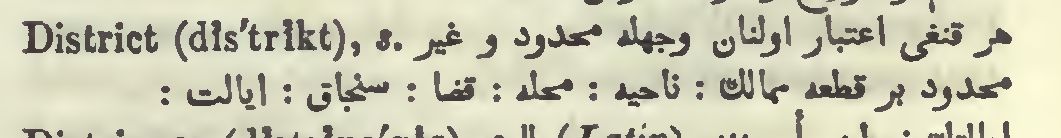 District (dĭs′trĭkt), s. هر قنغی اعتبار اولنان وجهله محدود و غیر
محدود بر قطعه ممالك : ناحیه : محله : قضا : سنجاق : ایالت :